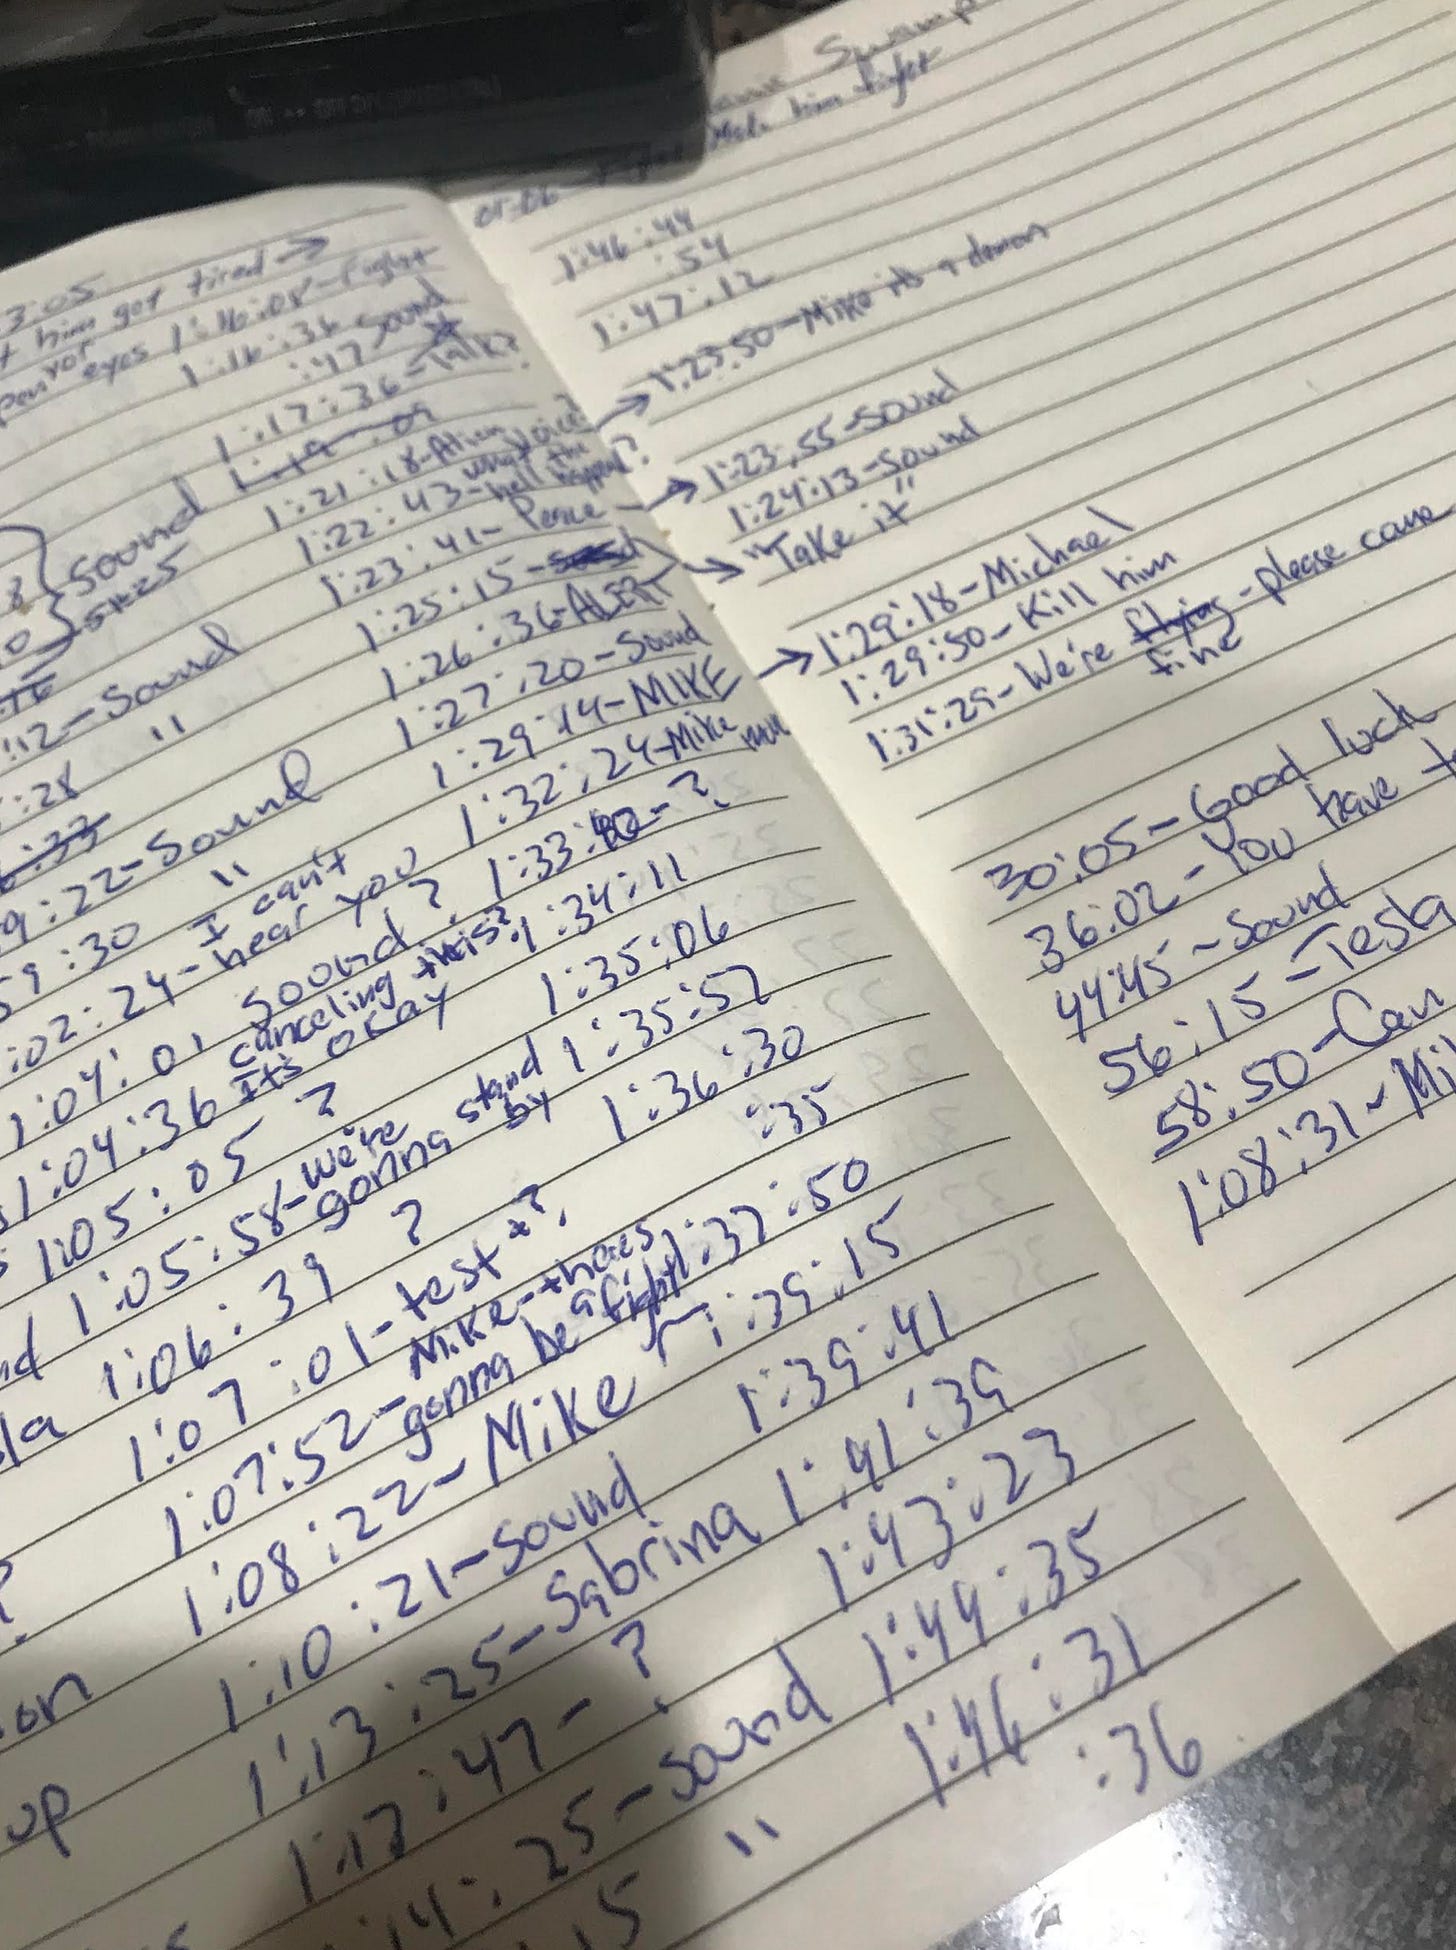 3:05
him got tired →
eyes 1:16:08-Fight
1:16:36 Sound
:47
1:17:36-Talk?
1:19:09
Sound
1:21:18-Alien voice?
1:22:43-what the hell happened?
1:23:41-Peace →
51:25
1:25:15-Sound →
1:26:36-ALERT
:12-Sound
1:27:20-Sound
"
1:29:14-MIKE →
:28
1:32:24-Mike
:33
1:33:42-?
9:22-Sound
1:34:11
59:30 "
1:35:06
:02:24-I can't hear you
1:35:57
1:04:01 Sound?
1:36:30
1:04:36 canceling this? It's okay
:35
1:05:05 ?
1:37:50
1:05:58-We're gonna stand by
1:39:15
1:06:39 ?
1:39:41
1:07:01-test*?
1:41:39
1:07:52-Mike-theres gonna be a fight!
1:43:23
1:08:22-Mike
1:44:35
1:10:21-Sound
1:46:31
1:13:25-Sabrina
:36
1:13:47-?
:14:25-Sound
:15 "
on
up
Swamp
him fight
1:46:44
:54
1:47:12
→ 1:23:50-Mike its a demon
→ 1:23:55-Sound
1:24:13-Sound
→ "Take it"
→ 1:29:18-Michael
1:29:50-Kill him
1:31:29-We're flying-please come
fine
30:05-Good luck
36:02-You have to
44:45-Sound
56:15-Tesla
58:50-Can
1:08:31-Mi